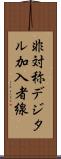 非対称デジタ
ル加入者線